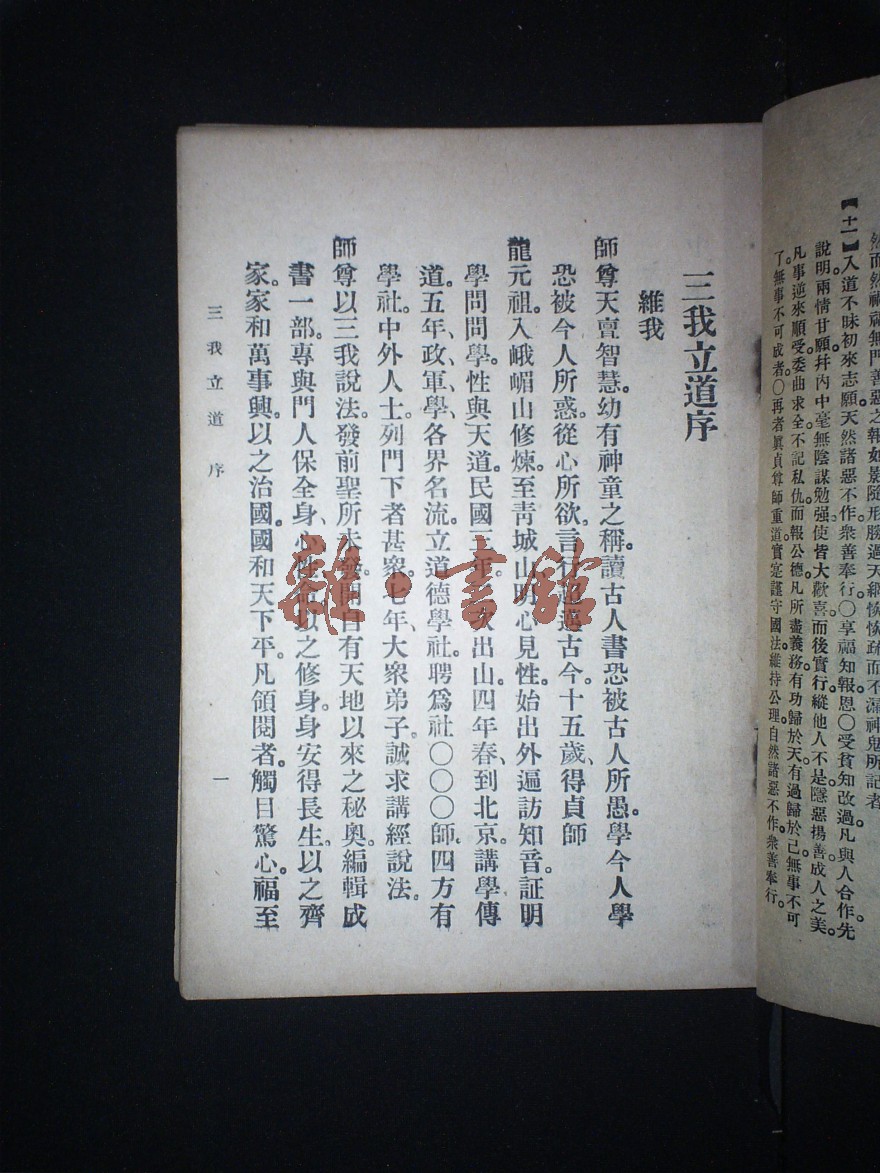 然而然禍福無門善惡之報如影隨形勝過天網恢恢疏而不漏神鬼所記者
【十一】入道不昧初來志願天然諸惡不作衆善奉行。〇享福知報恩〇受貧知改過凡與人合作。先
說明。兩情甘願幷內中毫無陰謀勉强使皆大歡喜而後實行縱他人不是隱惡揚善成人之美。
凡事逆來順受委曲求全不記私仇而報公德凡所盡義務有功歸於天有過歸於已無事不可
了。無事不可成者。〇再者眞貞尊師重道實寔謹守國法維持公理。自然諸惡不作。衆善奉行。
三我立道序
維我
師尊天亶智慧。幼有神童之稱。讀古人書恐被古人所愚。學今人學
恐被今人所惑。從心所欲。言行 古今。十五歲、得貞師
龍元祖。入峨嵋山修煉。至靑城山明心見性。始出外遍訪知音。証明
學問問學。性與天道。民國三年 出山。四年春、到北京。講學傳
道。五年、政、軍、學、各界名流。立道德學社。聘爲社〇〇〇師。四方有
學社。中外人士。列門下者甚衆。七年、大衆弟子。誠求講經說法。
師尊以三我說法。發前聖所未發。開自有天地以來之秘奧。編輯成
書一部。專與門人保全身、心性命以之修身。身安得長生。以之齊
家。家和萬事興。以之治國。國和天下平。凡領閱者。觸目驚心。福至
三我立道序
一
雜·書館